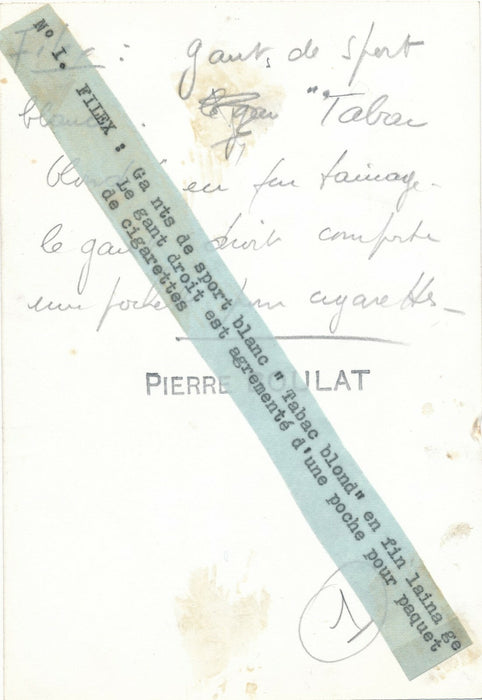 Filex : gants de sport
blanc "Tabac
blond" en fin lainage.
le gant droit comporte
une poche cigarettes_
PIERRE BOULAT
N° I. FILEX : Ga nts de sport blanc " Tabac blond" en fin laina ge
Le gant droit est agrementé d'une poche pour paquet
de cigarettes
1